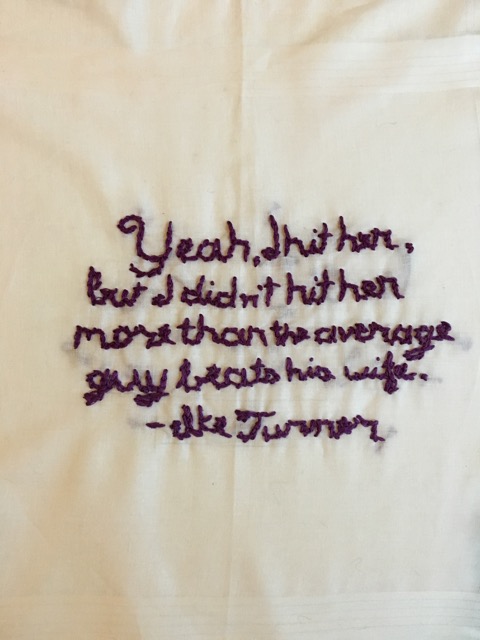 Yeah, I hit her,
but I didn't hit her
more than the average
guy beats his wife.
- Ike Turner